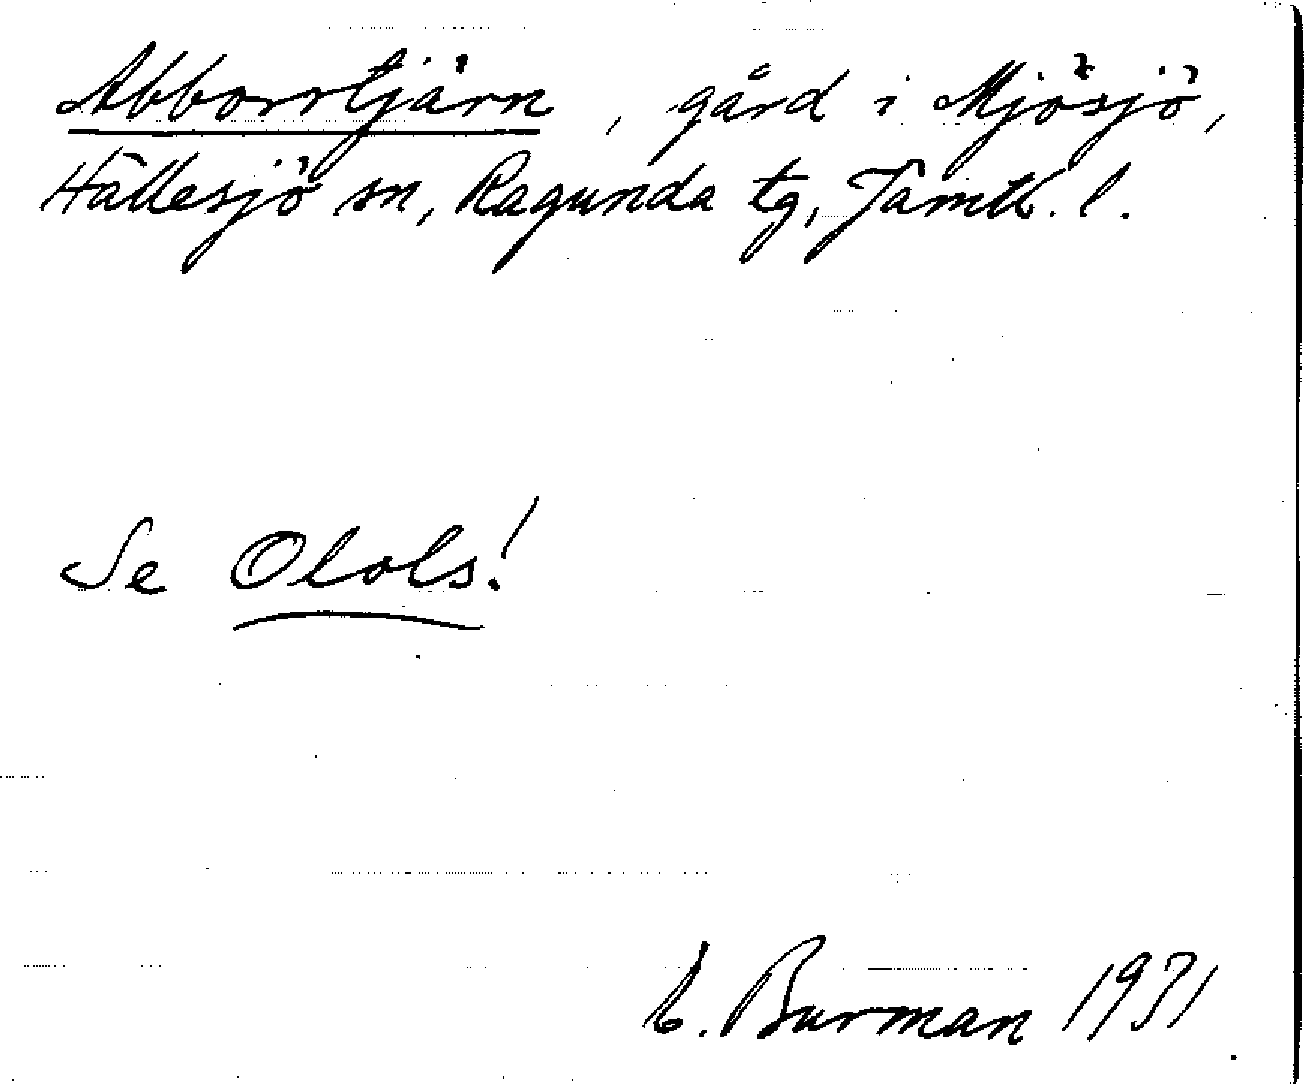 Abborrtjärn, gård i Mjösjö,
Hällesjö sn, Ragunda tg, Jämtl. l.
Se Olols!
C. Burman 1931